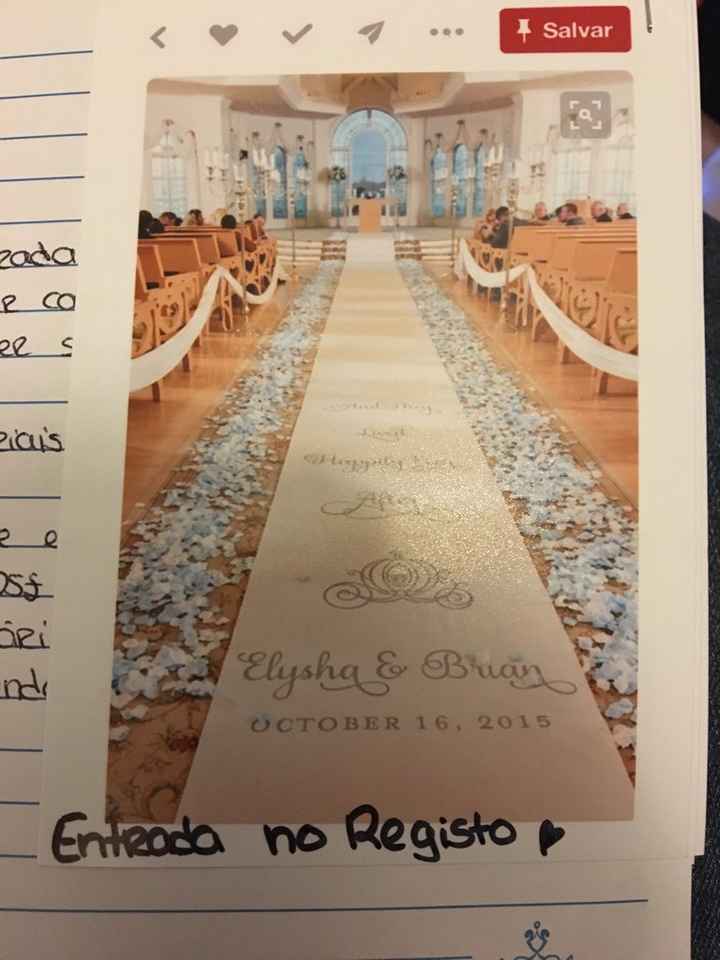 Salvar
zada
e co
er s
ciais
e e
osf
ári
nd
And they
lived
Happily Ever
After
Elysha & Brian
OCTOBER 16, 2015
Entrada no Registo